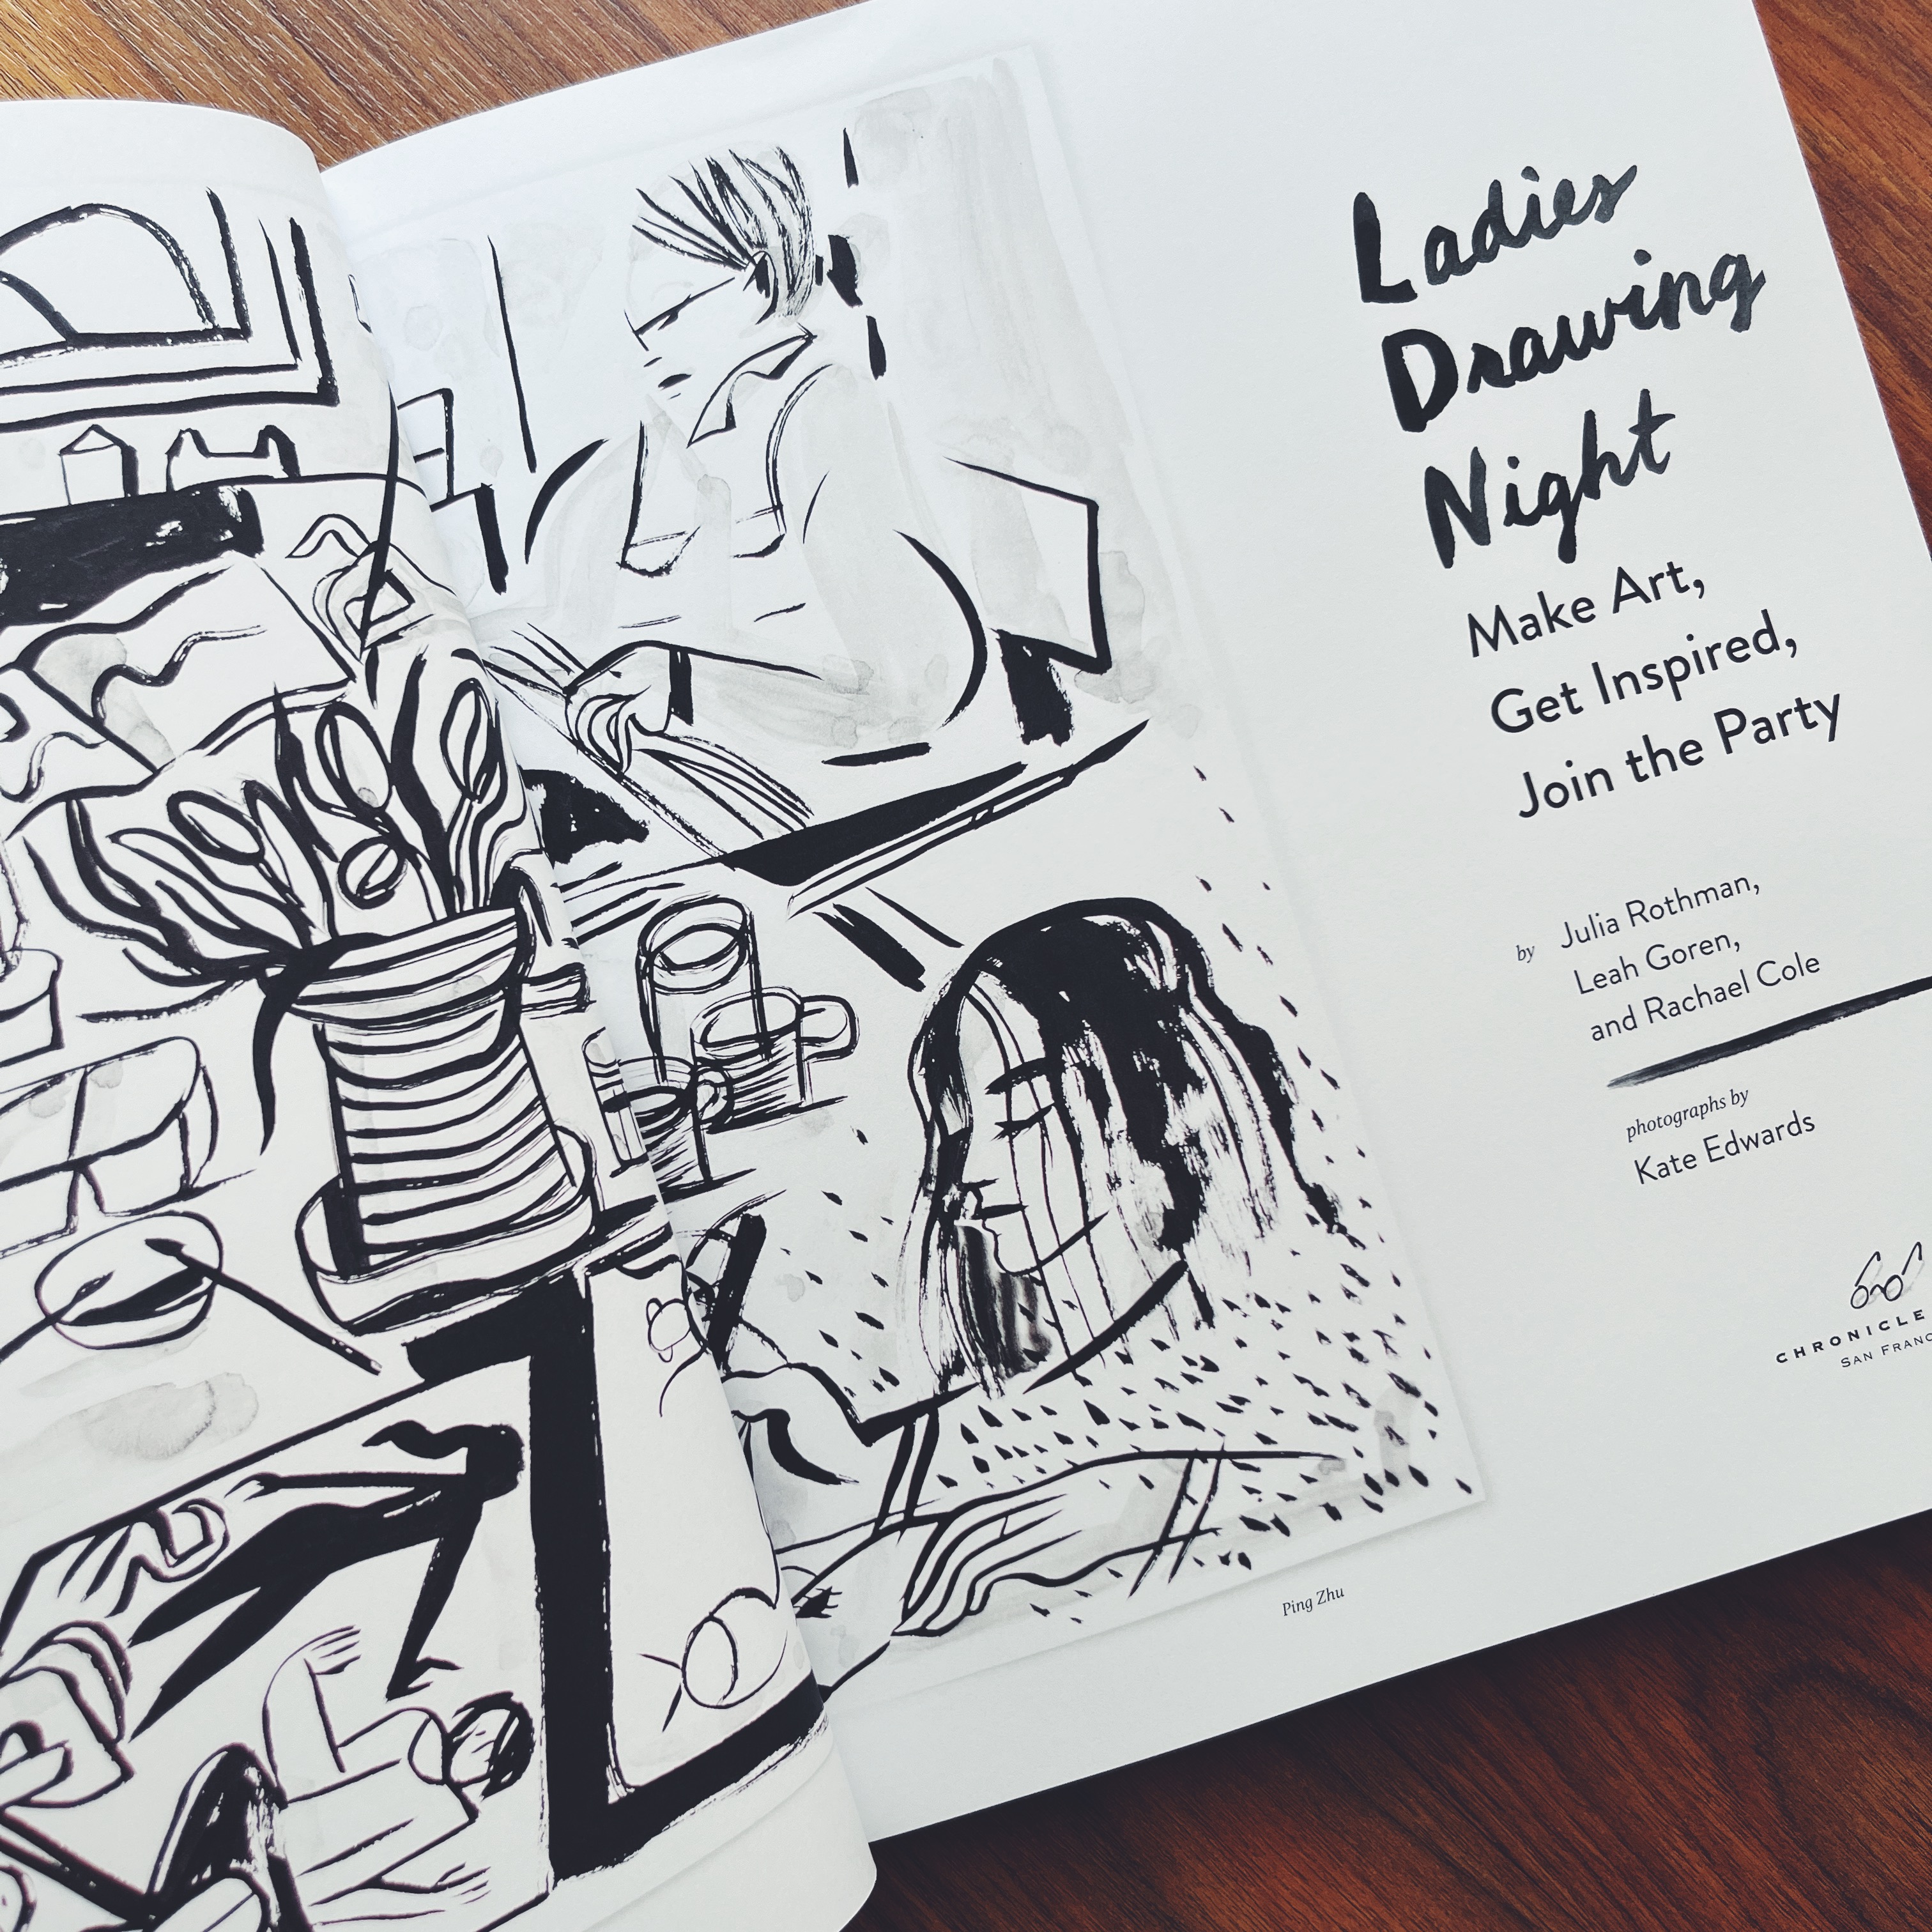 Ladies
Drawing
Night
Make Art,
Get Inspired,
Join the Party
by Julia Rothman,
Leah Goren,
and Rachael Cole
photographs by
Kate Edwards
CHRONICLE
SAN FRANC
Ping Zhu